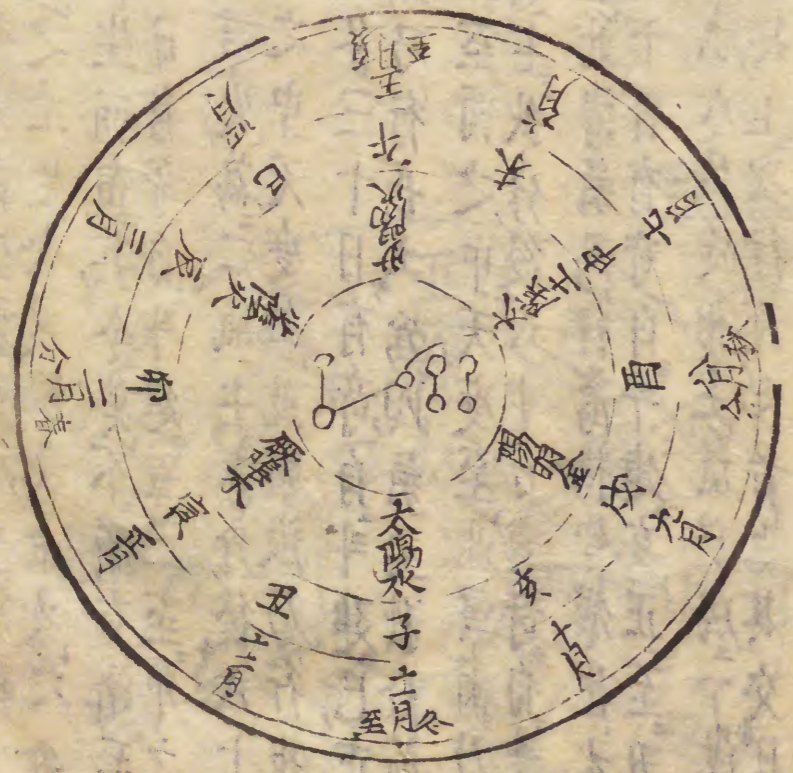 太陽水 子 十一月 冬至
丑 十二月
厥陰木 寅 正月
卯 二月 春分
少陰火 辰 三月
巳 四月
少陽火 午 五月 夏至
未 六月
太陰土 申 七月
酉 八月 秋分
陽明金 戌 九月
亥 十月